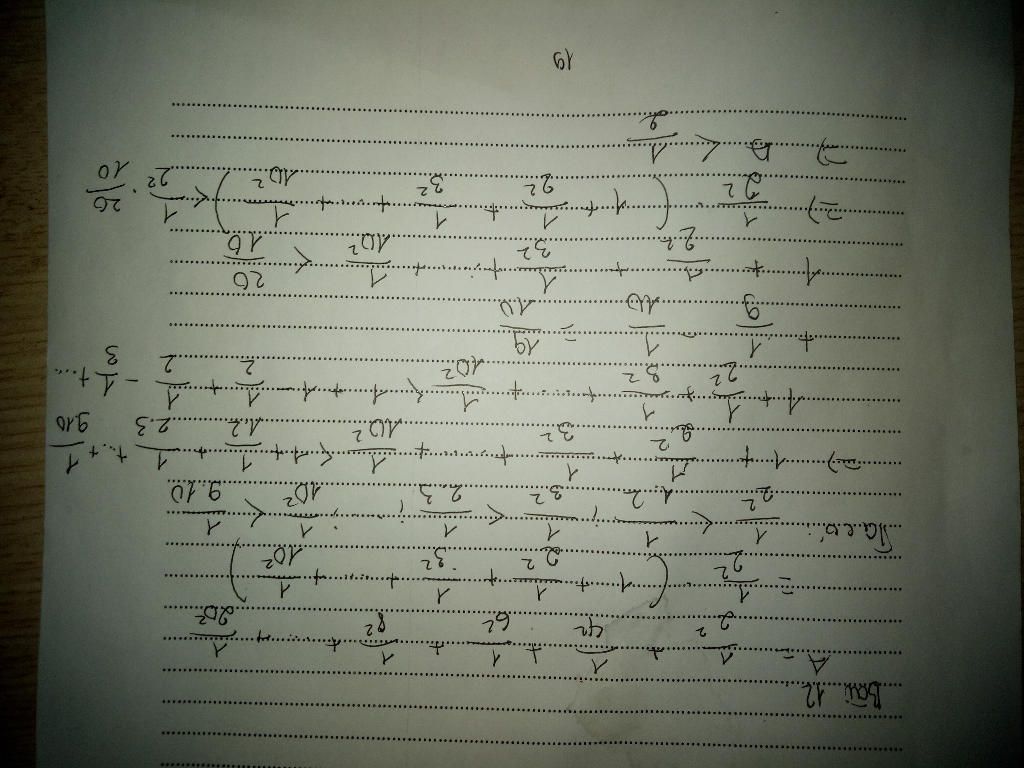 Bài 12
A = 1/2² + 1/4² + 1/6² + 1/8² + ... + 1/20²
= 1/2² . (1 + 1/2² + 1/3² + ... + 1/10²)
Ta có: 1/2² < 1/1.2 ; 1/3² < 1/2.3 ; ... ; 1/10² < 1/9.10
=> 1 + 1/2² + 1/3² + ... + 1/10² < 1 + 1/1.2 + 1/2.3 + ... + 1/9.10
1 + 1/2² + 1/3² + ... + 1/10² < 1 + 1 - 1/2 + 1/2 - 1/3 + ...
+ 1/9 - 1/10 = 19/10
1 + 1/2² + 1/3² + ... + 1/10² < 20/10
=> 1/2² . (1 + 1/2² + 1/3² + ... + 1/10²) < 1/2² . 20/10
=> A < 1/2
19